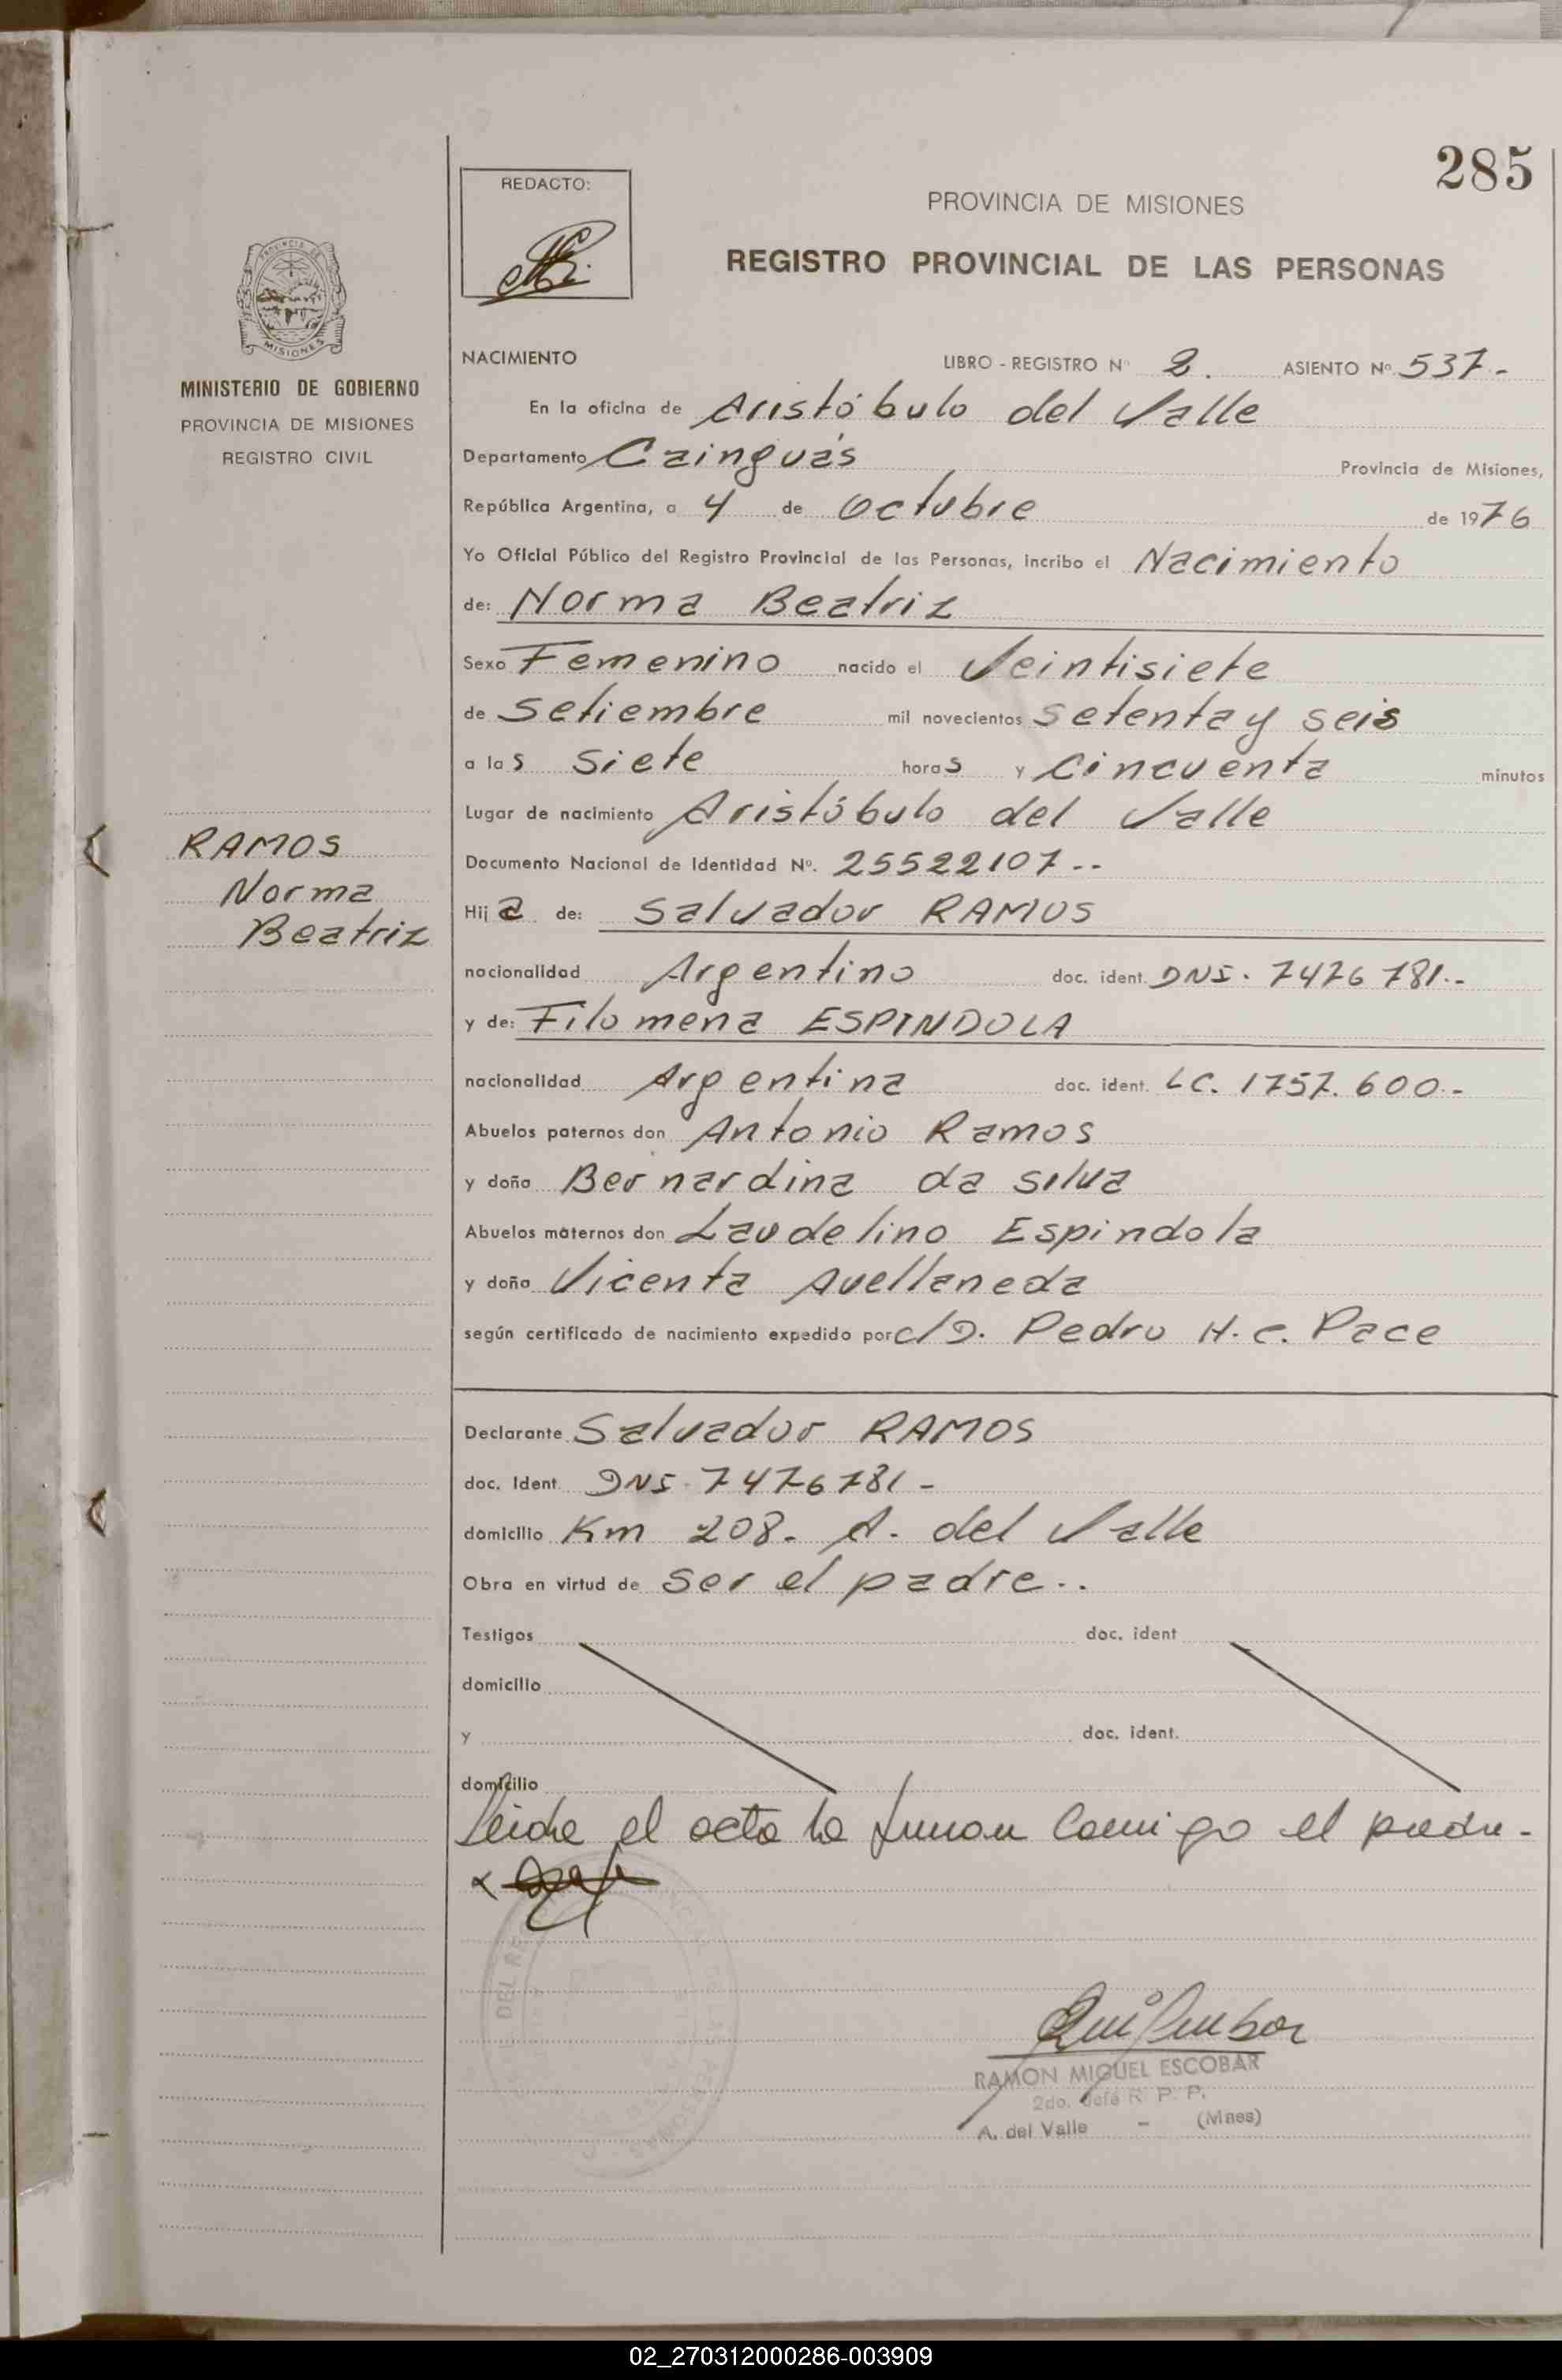 285
REDACTO:
PROVINCIA DE MISIONES
REGISTRO PROVINCIAL DE LAS PERSONAS
MISIONES
MINISTERIO DE GOBIERNO
PROVINCIA DE MISIONES
REGISTRO CIVIL
NACIMIENTO LIBRO - REGISTRO Nº 2. ASIENTO Nº 537-
En la oficina de Aristóbulo del Valle
Departamento Cainguás Provincia de Misiones,
República Argentina, a 4 de Octubre de 1976
Yo Oficial Público del Registro Provincial de las Personas, incribo el Nacimiento
de: Norma Beatriz
Sexo Femenino nacido el Veintisiete
de Setiembre mil novecientos setenta y seis
a las siete horas y cincuenta minutos
Lugar de nacimiento Aristóbulo del Valle
RAMOS
Norma
Beatriz
Documento Nacional de Identidad Nº. 25522107--
Hija de: Salvador RAMOS
nacionalidad Argentino doc. ident. DNI. 7476781.-
y de: Filomena ESPINDOLA
nacionalidad Argentina doc. ident. LC. 1757.600.-
Abuelos paternos don Antonio Ramos
y doña Bernardina da silva
Abuelos maternos don Laudelino Espindola
y doña Vicenta Avellaneda
según certificado de nacimiento expedido por c/D. Pedro H. C. Pace
Declarante Salvador RAMOS
doc. Ident. DNI. 7476781-
domicilio Km 208. A. del Valle
Obra en virtud de ser el padre..
Testigos doc. ident
domicilio
y doc. ident.
domicilio
Leida el acta la firman Conmigo el padre-
RAMON MIGUEL ESCOBAR
2do. Jefe R. P. P.
A. del Valle - (Mnes)
02_270312000286-003909